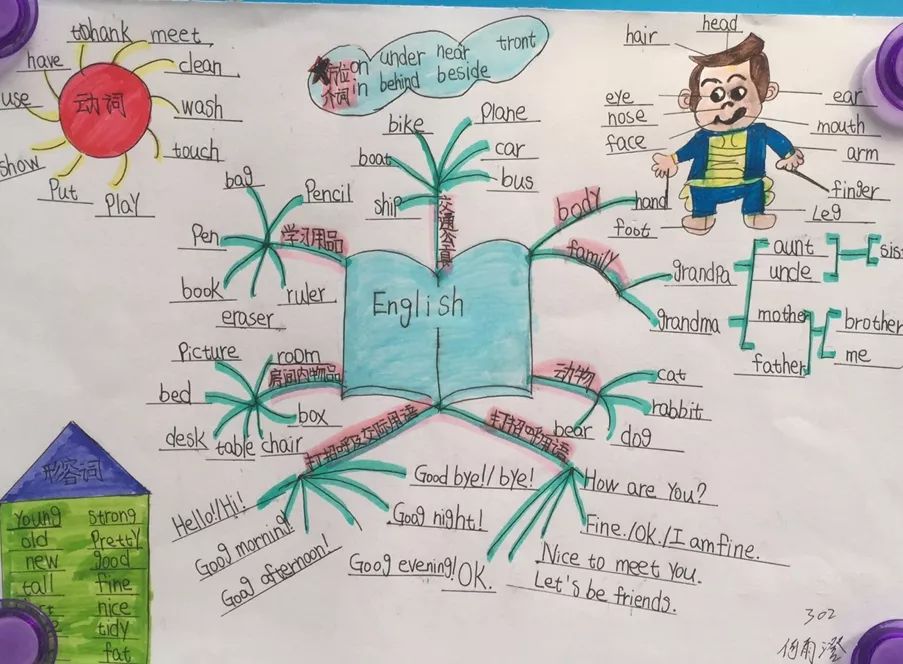 to hank
meet
have
clean
use
动词
wash
show
touch
Put
Play
方位
介词
on under near tront
in behind beside
head
hair
eye
nose
face
ear
mouth
arm
finger
hand
Leg
foot
bike
Plane
boat
car
bus
ship
交通公具
body
family
grandpa
grandma
aunt
uncle
sis
mother
father
brother
me
bag
Pencil
Pen
学习用品
book
ruler
eraser
English
Picture
room
房间内物品
bed
box
desk
table
chair
动物
cat
rabbit
bear
dog
打招呼及交际用语
Hello!/Hi!
Goog morning!
Gog afternoon!
Good bye!/bye!
Goog night!
Goog evening!
打招呼用语
How are You?
Fine./OK./I am fine.
Nice to meet You.
Let's be friends.
OK.
形容词
Young strong
old Pretty
new good
tall fine
nice
tidy
fat
302